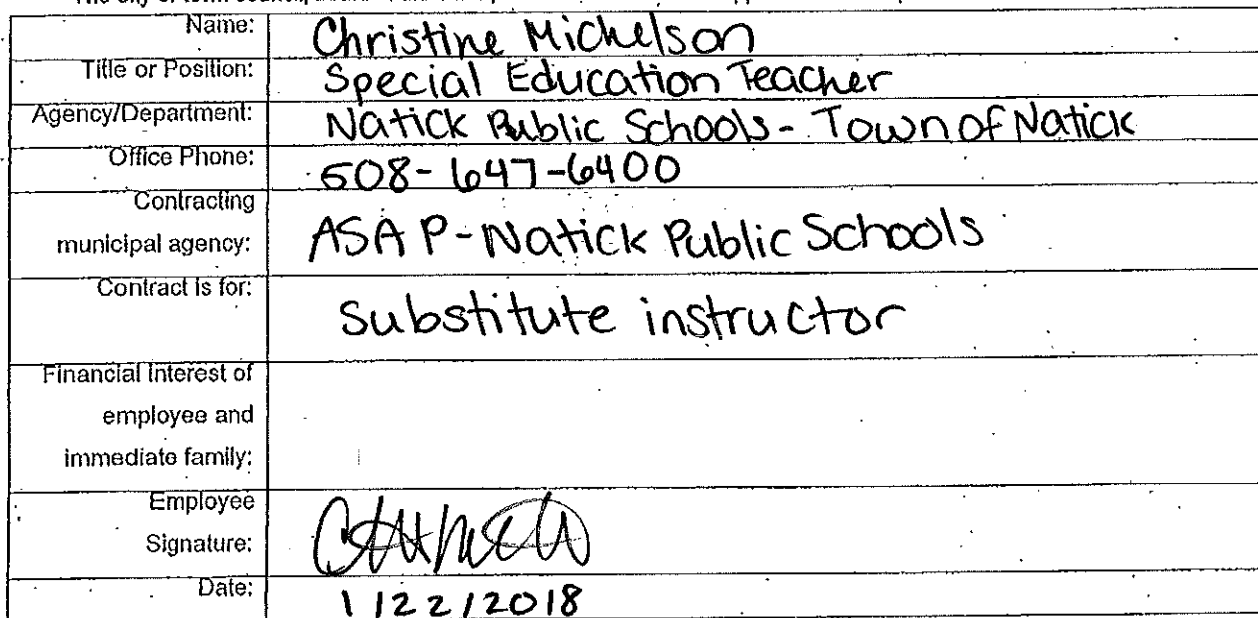 Name: Christine Michelson
Title or Position: Special Education Teacher
Agency/Department: Natick Public Schools - Town of Natick
Office Phone: 508-647-6400
Contracting
municipal agency: ASAP-Natick Public Schools
Contract is for: Substitute instructor
Financial interest of
employee and
immediate family:
Employee
Signature:
Date: 1/22/2018